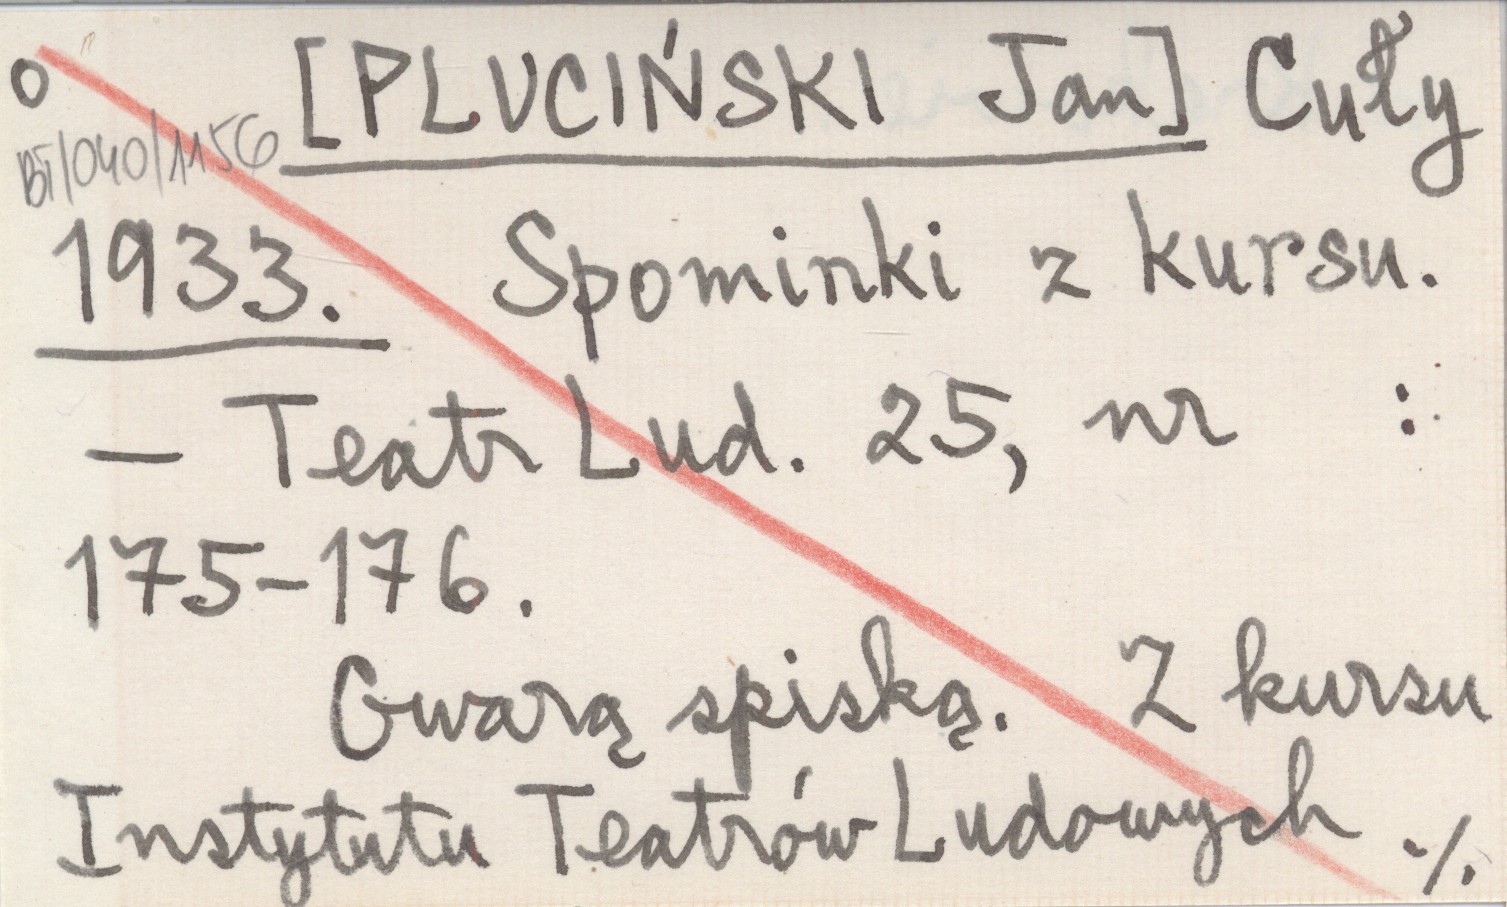 O [PLUCIŃSKI Jan] Cuły
BI/040/1156
1933. Spominki z kursu.
— Teatr Lud. 25, nr :
175-176.
Gwarą spiską. Z kursu
Instytutu Teatrów Ludowych ./.